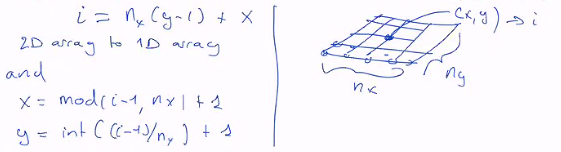 i = nx (y-1) + x
2D array to 1D array
and
x = mod(i-1, nx) + 1
y = int ((i-1)/nx) + 1
(x, y) → i
nx
ny